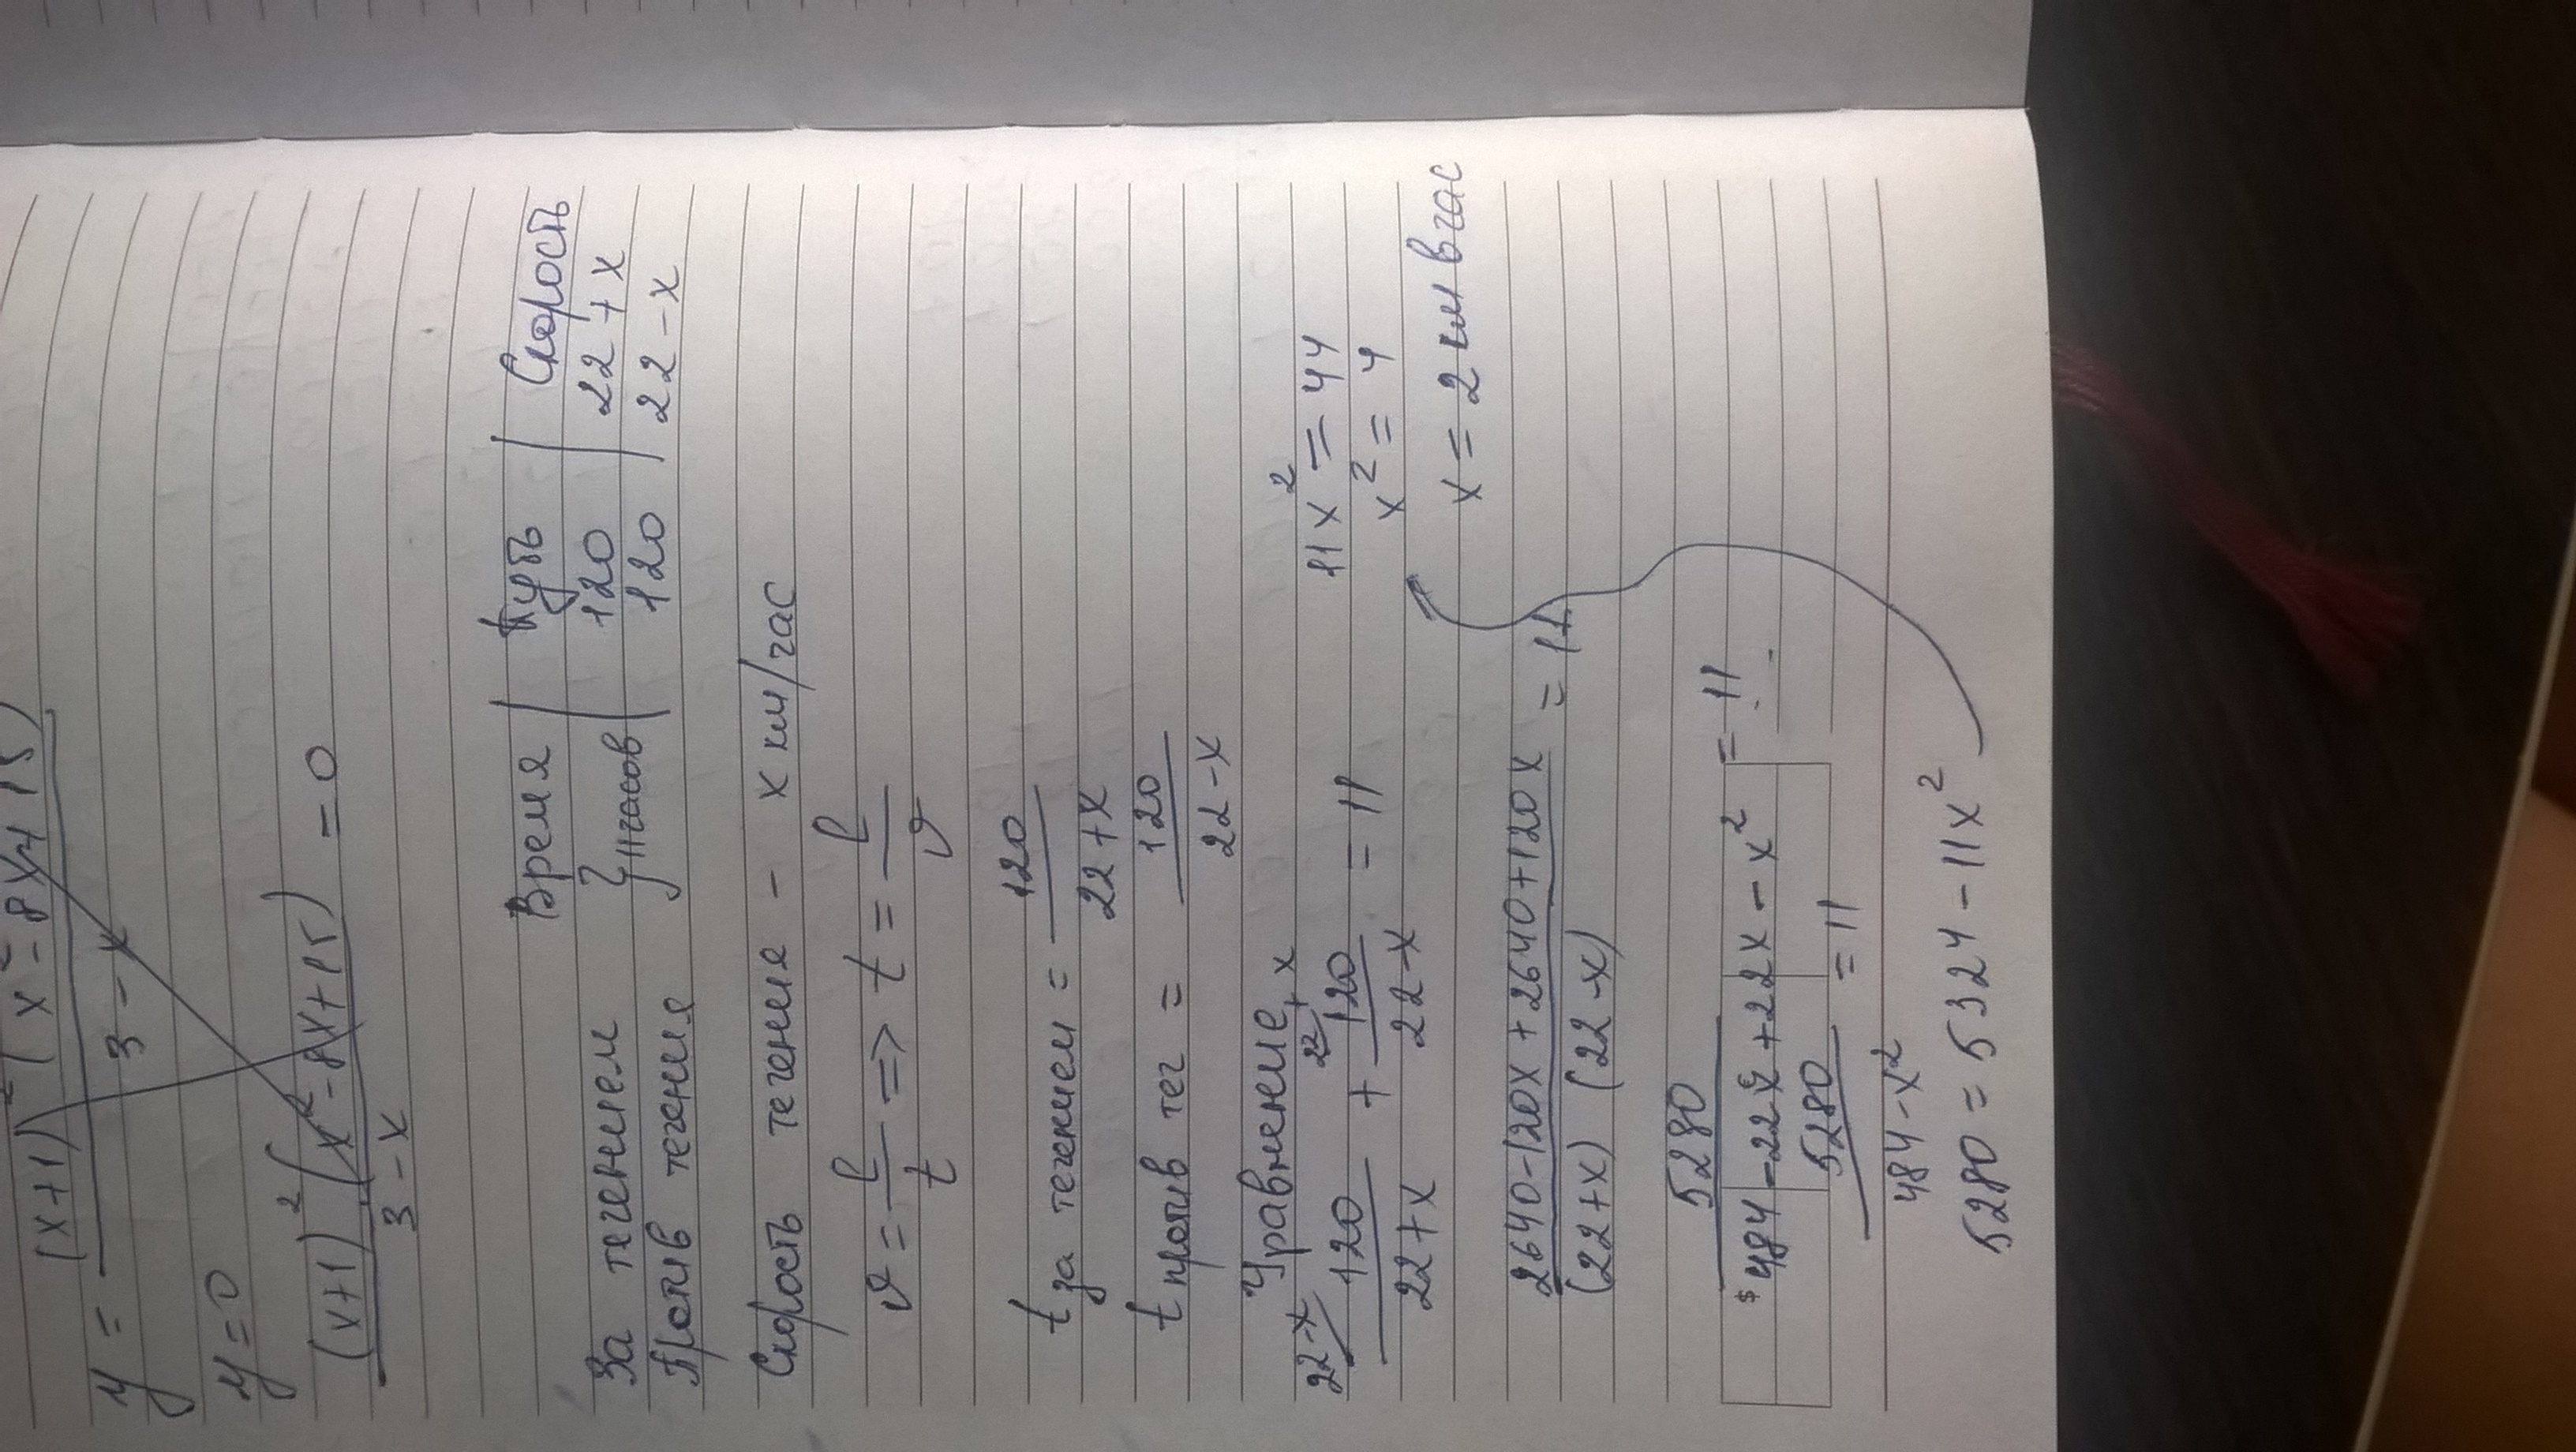 (x+1)² (x²-8x+15)
y = 3-x
y=0
(x+1)² (x²-8x+15) =0
3-x
Время | Путь | Скорость
За течением } 11часов | 120 | 22+x
Против течения | 120 | 22-x
Скорость течения - x км/час
v = l/t => t = l/v
t за течением = 120/22+x
t против теч = 120/22-x
Уравнение
22-x 22+x
120/22+x + 120/22-x = 11
2640-120x+2640+120x = 11
(22+x) (22-x)
5280
484-22x+22x-x² = 11
5280 = 11
484-x²
5280 = 5324-11x²
11x² = 44
x² = 4
x = 2 км в час